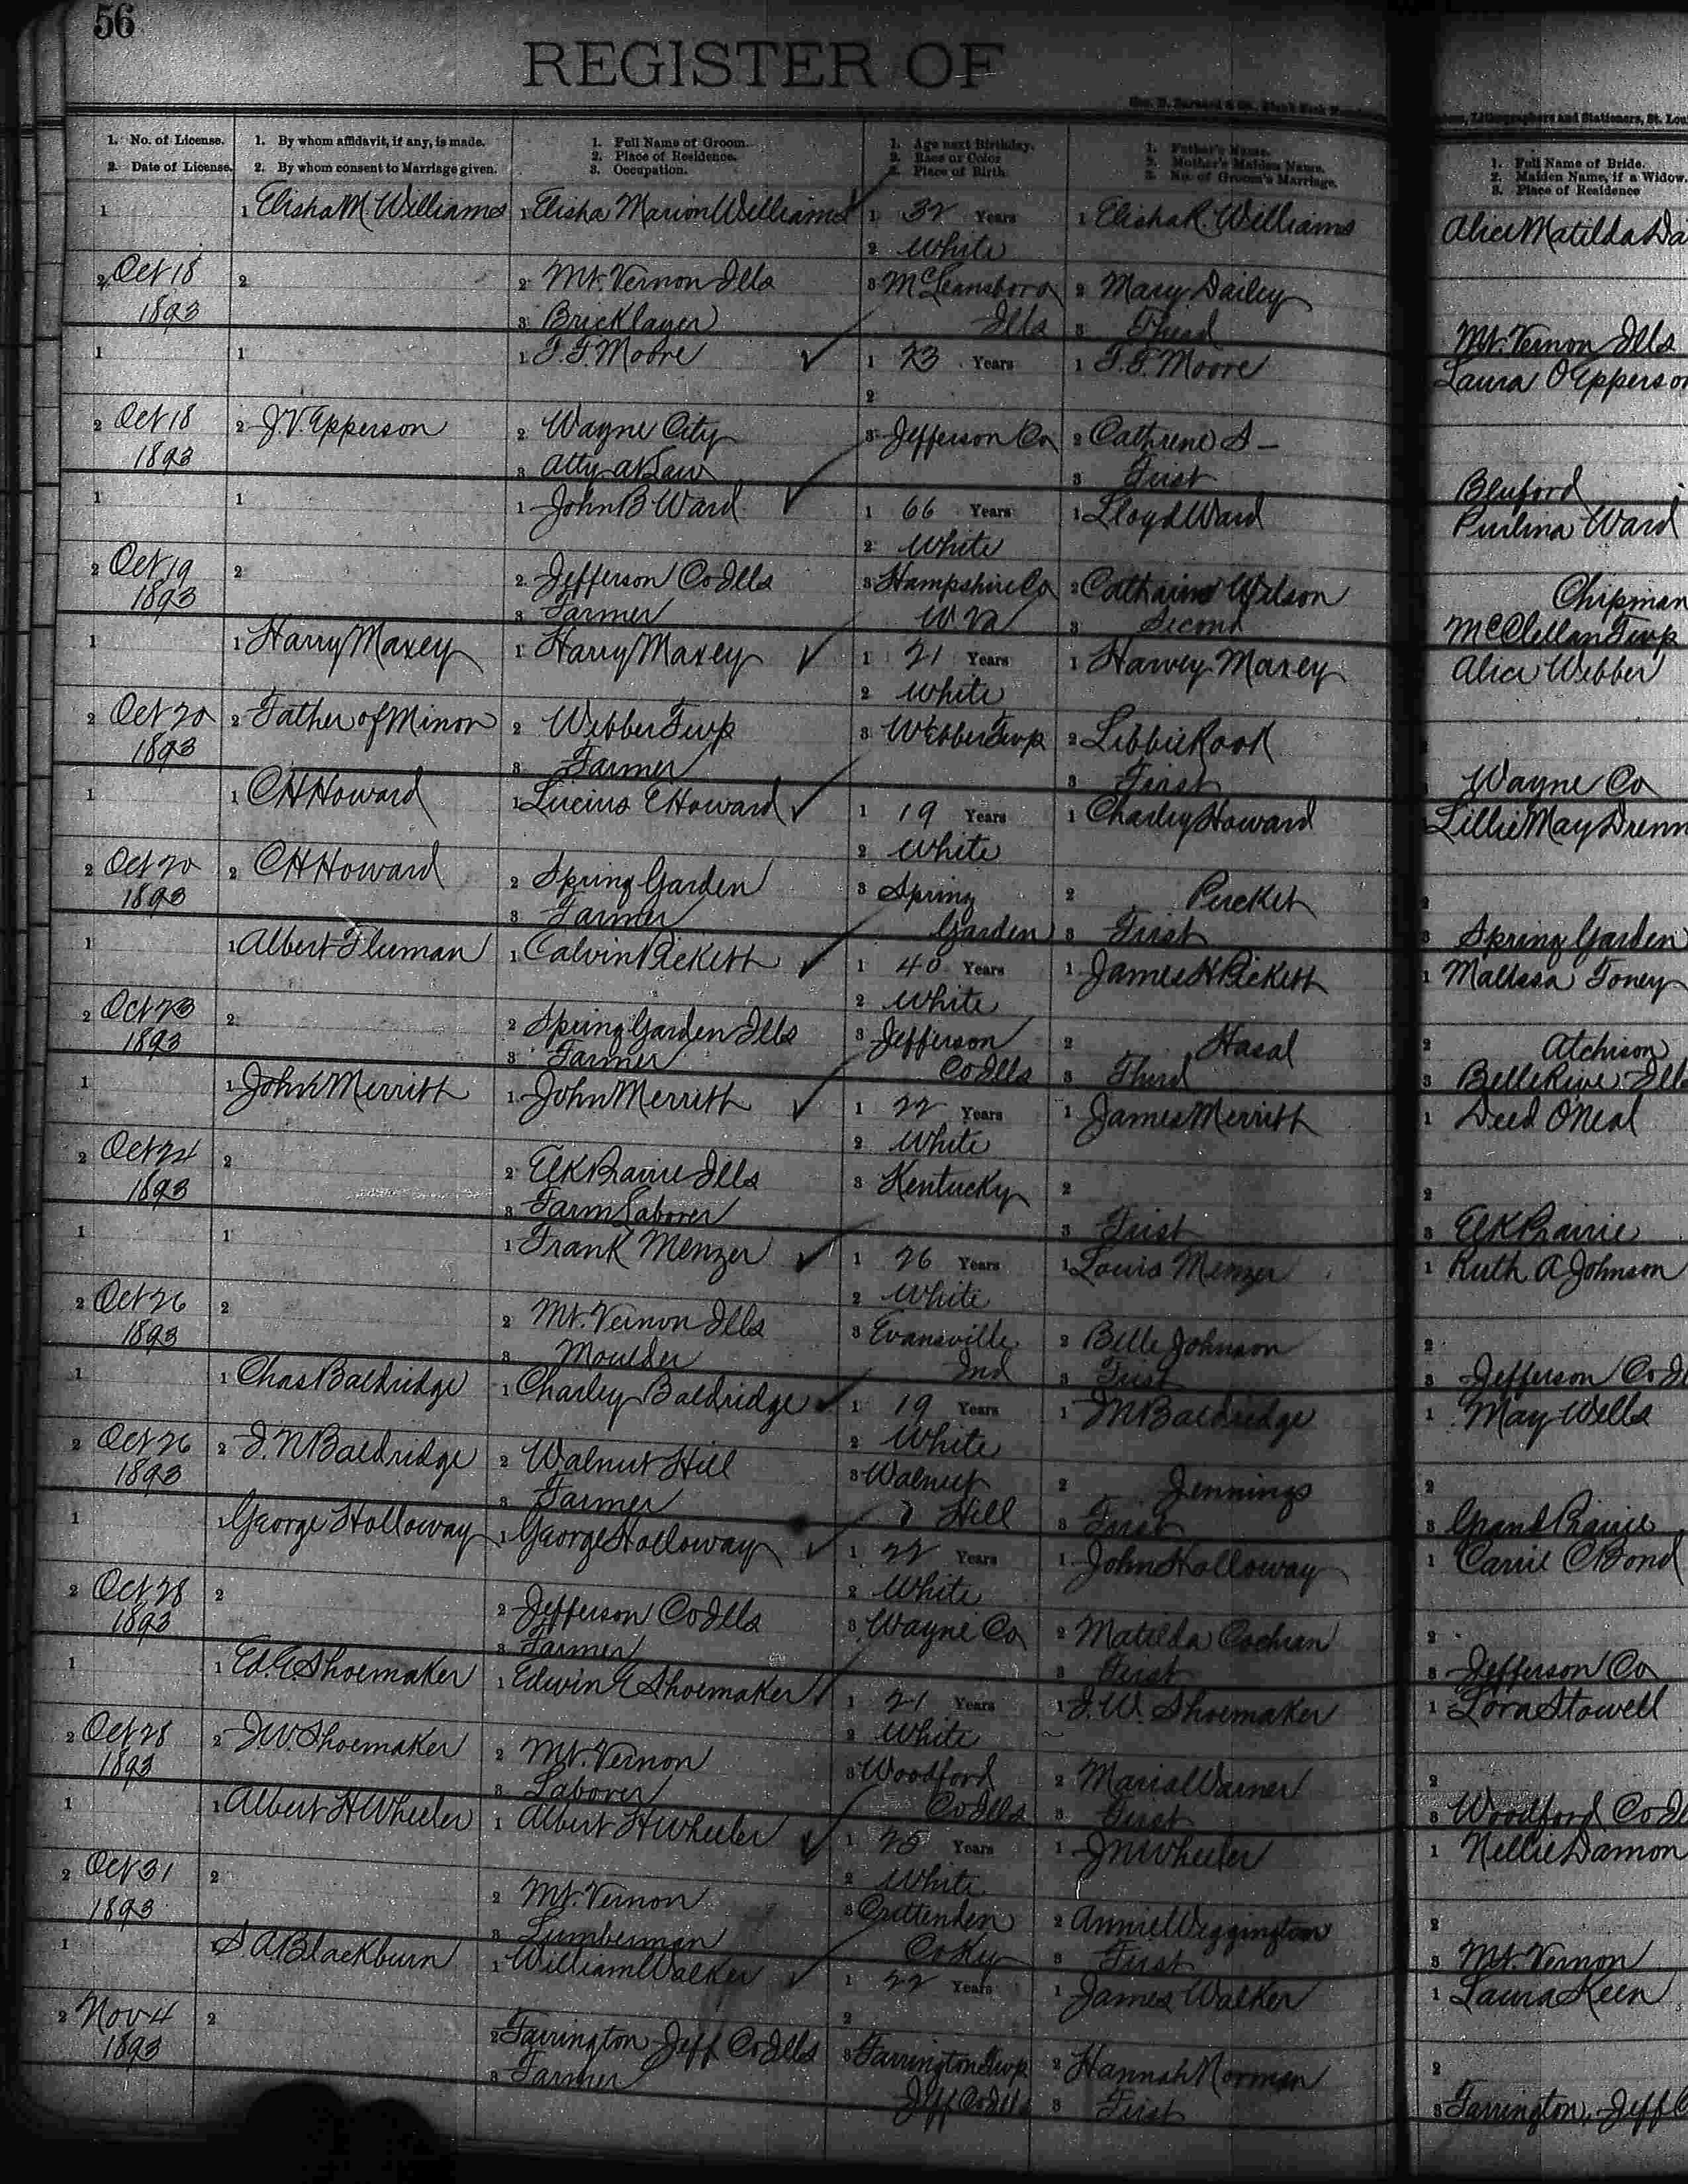 56
REGISTER OF
1. No. of License.
2. Date of License.
1. By whom affidavit, if any, is made.
2. By whom consent to Marriage given.
1. Full Name of Groom.
2. Place of Residence.
3. Occupation.
1. Age next Birthday.
2. Race or Color
3. Place of Birth
1. Father's Name.
2. Mother's Maiden Name.
3. No. of Groom's Marriage.
1. Full Name of Bride.
2. Maiden Name, if a Widow.
3. Place of Residence
1
2 Oct 18
1893
1 Elisha M Williams
2
1 Elisha Marion Williams
2 Mt. Vernon Ills
3 Bricklayer
1 32 Years
2 White
3 McLeansboro
Ills
1 Elisha R. Williams
2 Mary Dailey
3 Third
Alice Matilda Da
Mt. Vernon Ills
1
2 Oct 18
1893
1
2 J.V. Epperson
1 T.F. Moore
2 Wayne City
3 Atty at Law
1 23 Years
2
3 Jefferson Co
1 T.F. Moore
2 Cathrene S —
3 First
Laura O Epperson
Bluford
1
2 Oct 19
1893
1
2
1 John B Ward
2 Jefferson Co Ills
3 Farmer
1 66 Years
2 White
3 Hampshire Co
W Va
1 Lloyd Ward
2 Catharine Wilson
3 Second
Purlina Ward
Chipman
McClellan Twp
1
2 Oct 20
1893
1 Harry Maxey
2 Father of Minor
1 Harry Maxey
2 Webber Twp
3 Farmer
1 21 Years
2 White
3 Webber Twp
1 Harvey Maxey
2 Libbie Rook
3 First
Alice Webber
Wayne Co
1
2 Oct 20
1893
1 CH Howard
2 CH Howard
1 Lucius E Howard
2 Spring Garden
3 Farmer
1 19 Years
2 White
3 Spring
Garden
1 Charley Howard
2 Pucket
3 First
Lillie May Drenn
2
3 Spring Garden
1
2 Oct 23
1893
1 Albert Fluman
2
1 Calvin Pickett
2 Spring Garden Ills
3 Farmer
1 40 Years
2 White
3 Jefferson
Co Ills
1 James H Pickett
2 Hasal
3 Third
1 Malissa Toney
2 Atchison
3 Belle Rive Ills
1
2 Oct 24
1893
1 John Merritt
2
1 John Merritt
2 Elk Prairie Ills
3 Farm Laborer
1 22 Years
2 White
3 Kentucky
1 James Merritt
2
3 First
1 Deed O'Neal
2
3 Elk Prairie
1
2 Oct 26
1893
1
2
1 Frank Menzer
2 Mt. Vernon Ills
3 Moulder
1 26 Years
2 White
3 Evansville
Ind
1 Louis Menzer
2 Belle Johnson
3 First
1 Ruth A Johnson
2
3 Jefferson Co Il
1
2 Oct 26
1893
1 Chas Baldridge
2 J.N Baldridge
1 Charley Baldridge
2 Walnut Hill
3 Farmer
1 19 Years
2 White
3 Walnut
Hill
1 J N Baldridge
2 Jennings
3 First
1 May Wells
2
3 Grand Prairie
1
2 Oct 28
1893
1 George Holloway
2
1 George Holloway
2 Jefferson Co Ills
3 Farmer
1 22 Years
2 White
3 Wayne Co
1 John Holloway
2 Matilda Cochran
3 First
1 Carrie C Bond
2
3 Jefferson Co
1
2 Oct 28
1893
1 Ed. E Shoemaker
2 J.W. Shoemaker
1 Edwin E Shoemaker
2 Mt. Vernon
3 Laborer
1 21 Years
2 White
3 Woodford
Co Ills
1 J.W. Shoemaker
2 Maria Warner
3 First
1 Lora Stowell
2
3 Woodford Co Il
1
2 Oct 31
1893
1 Albert H Wheeler
2
1 Albert H Wheeler
2 Mt. Vernon
3 Lumberman
1 25 Years
2 White
3 Crittenden
Co Ky
1 J N Wheeler
2 Annie Wiggington
3 First
1 Nellie Damon
2
3 Mt. Vernon
1
2 Nov 4
1893
S A Blackburn
2
1 William Walker
2 Farrington Jeff Co Ills
3 Farmer
1 22 Years
2
3 Farrington Twp
Jeff Co Ills
1 James Walker
2 Hannah Norman
3 First
1 Laura Keen
2
3 Farrington, Jeff C